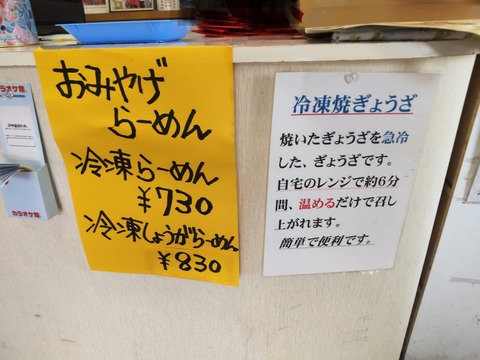 おみやげ
らーめん
冷凍らーめん
¥730
冷凍しょうがらーめん
¥830
冷凍焼ぎょうざ
焼いたぎょうざを急冷
した、ぎょうざです。
自宅のレンジで約6分
間、温めるだけで召し
上がれます。
簡単で便利です。
カラオケ館
カラオケ館